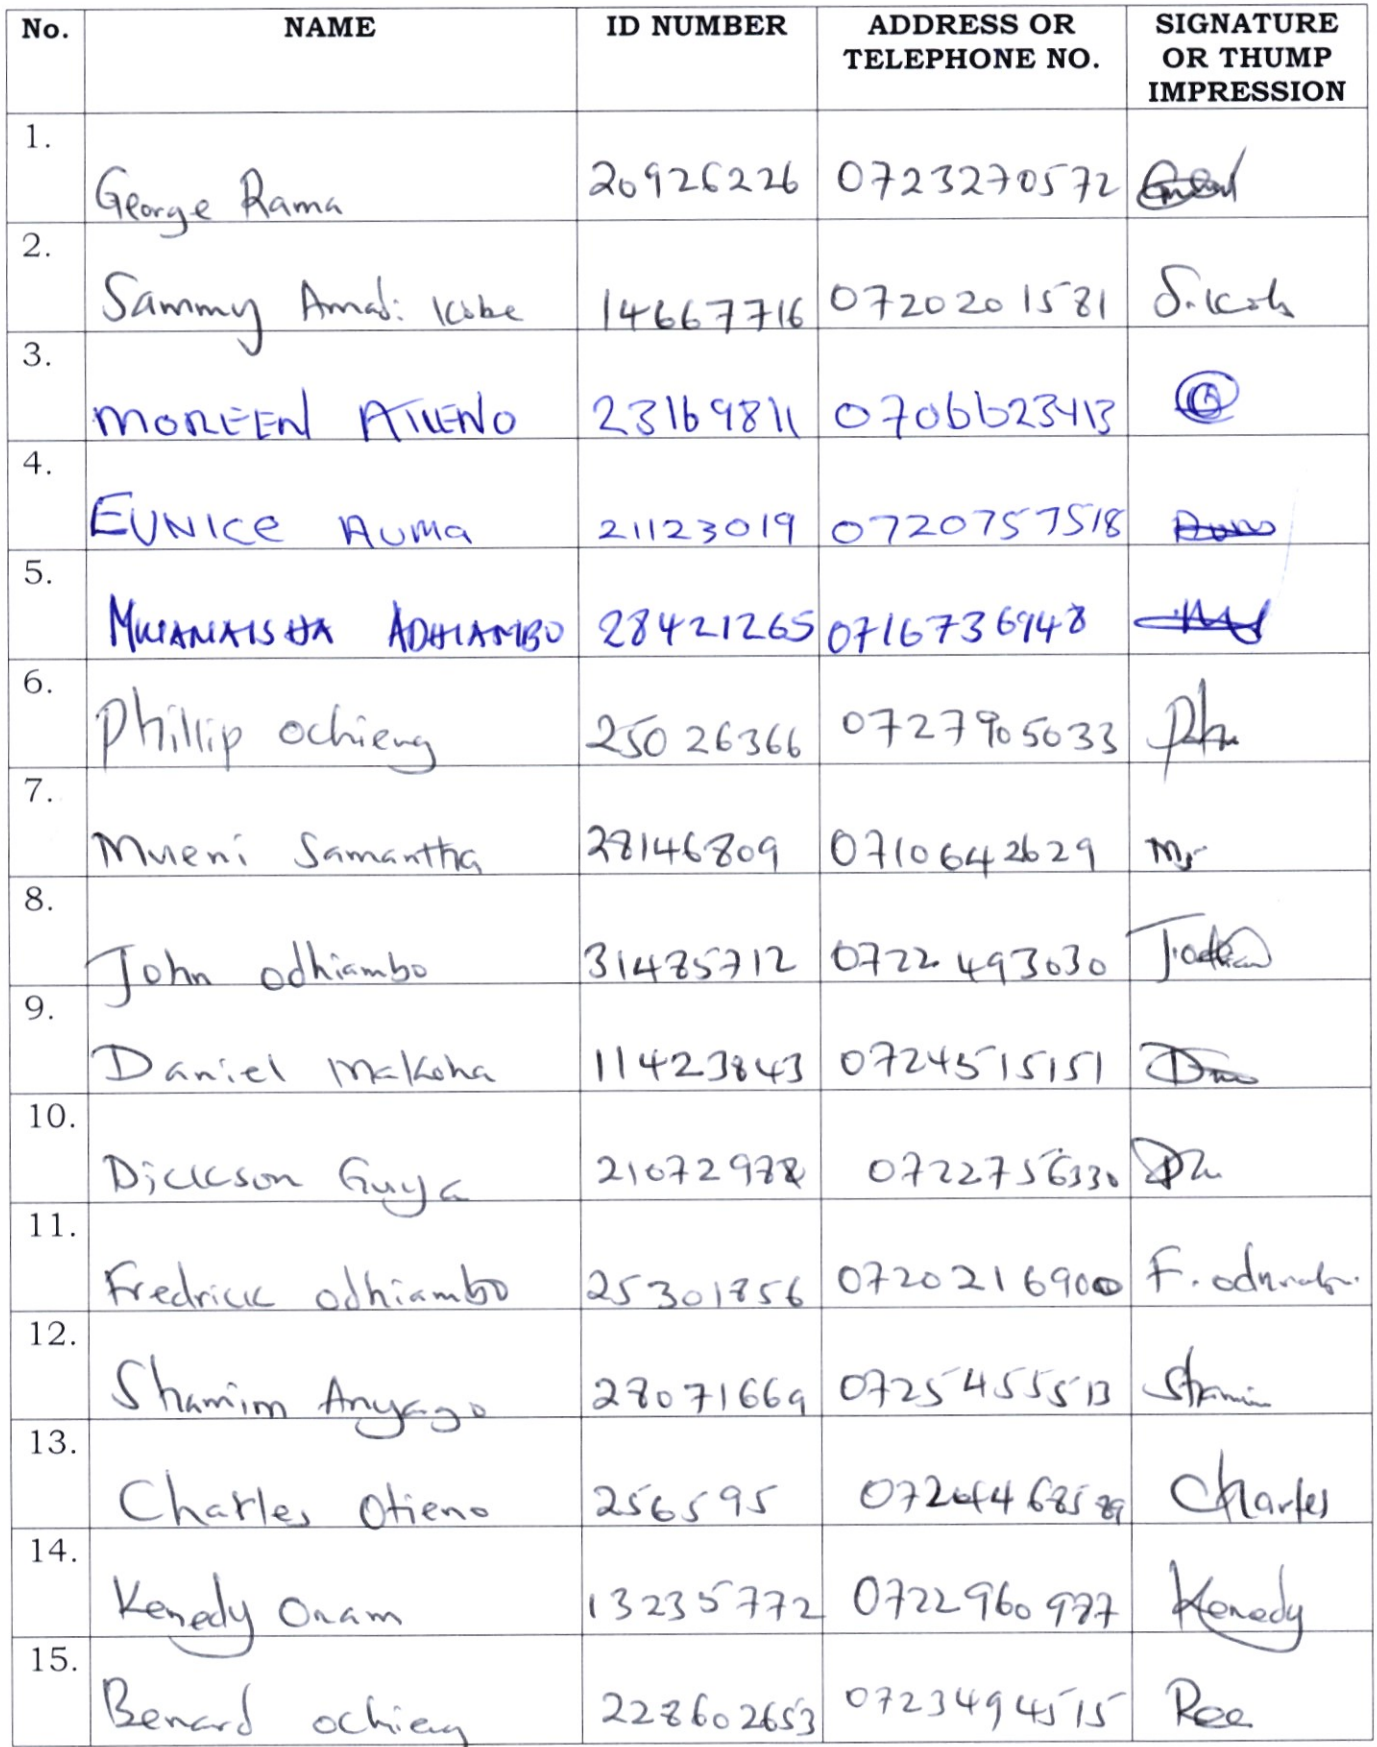 No. NAME ID NUMBER ADDRESS OR TELEPHONE NO. SIGNATURE OR THUMP IMPRESSION
1. George Rama 20926226 0723270572
2. Sammy Amadi Kobe 14667716 0720201581 S.Kob
3. MOREEN ATIENO 23169811 0706623413
4. EUNICE AUMA 21123019 0720757518
5. MWANAISHA ADHIAMBO 28421265 0716736948
6. Phillip ochieng 25026366 0727905033
7. Mueni Samantha 28146809 0710642629
8. John odhiambo 31485712 0722493030
9. Daniel Makoha 11423843 0724515151
10. Dickson Guya 0722756330
11. Fredrick odhiambo 25301856 0720216900
12. Shamim Anyago 28071669 0725455513 Shamim
13. Charles Otieno 256595 Charles
14. Kenedy Onam 13235772 0722960977 Kenedy
15. Benard ochieng 228602653 0723494515